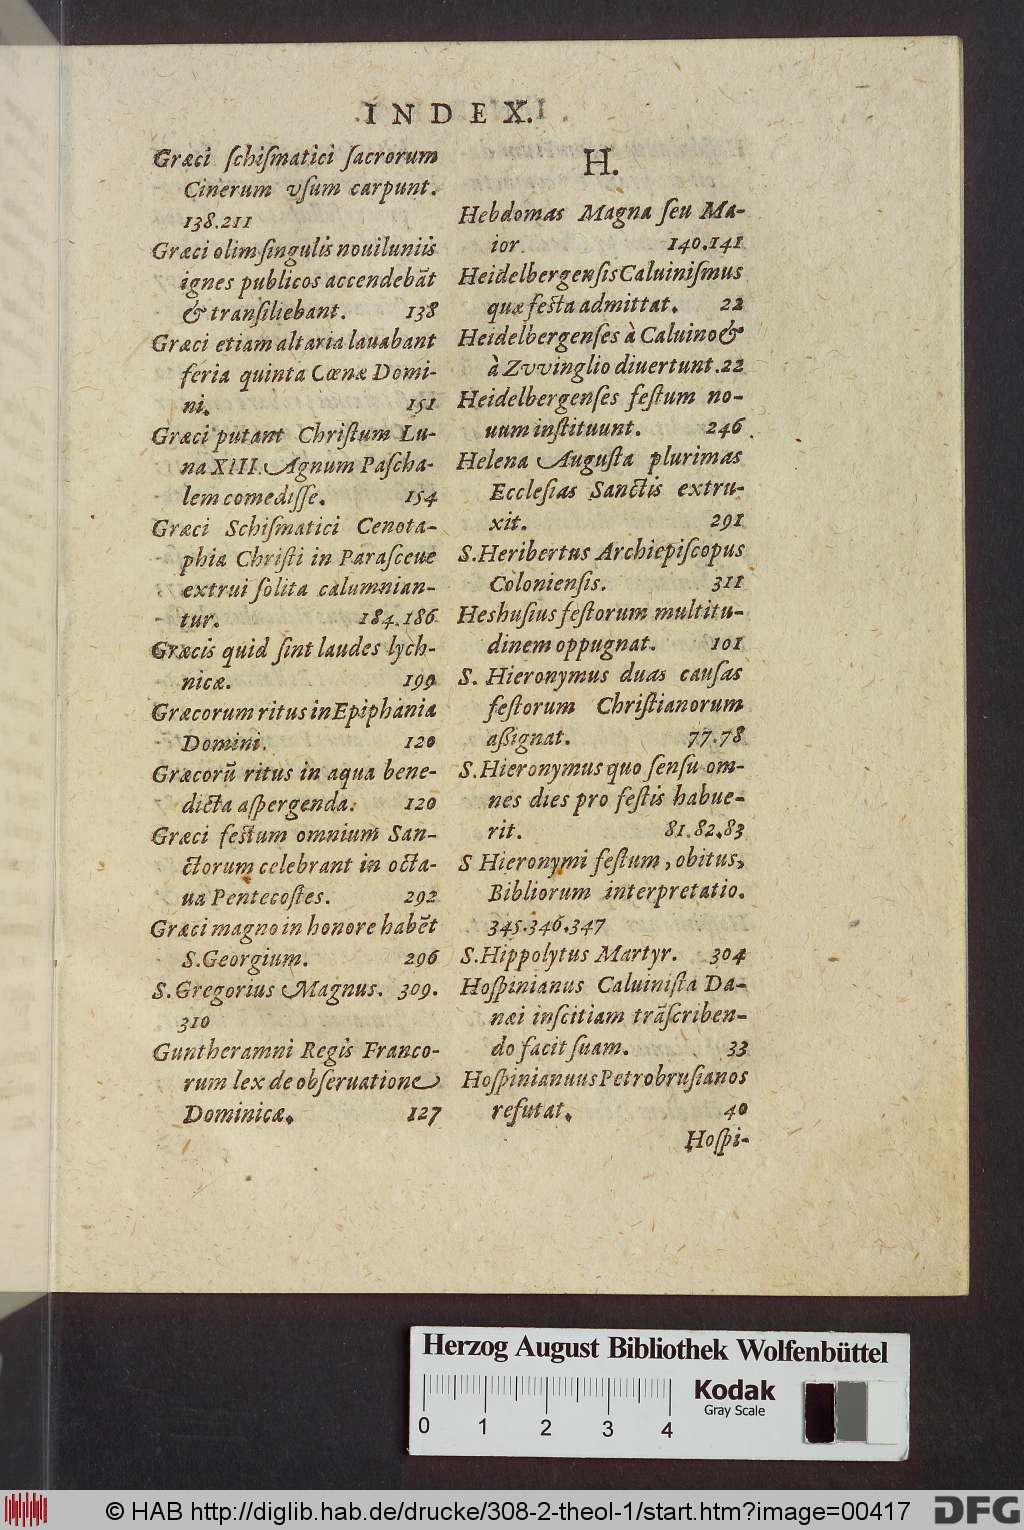 INDEX.
Græci ſchiſmatici ſacrorum
Cinerum vſum carpunt.
138.211
Græci olim ſingulis nouiluniis
ignes publicos accendebāt
& tranſiliebant. 138
Græci etiam altaria lauabant
feria quinta Cœnæ Domi-
ni. 151
Græci putant Chriſtum Lu-
na XIII. Agnum Paſcha-
lem comediſſe. 154
Græci Schiſmatici Cenota-
phia Chriſti in Paraſceue
extrui ſolita calumnian-
tur. 184.186
Græcis quid ſint laudes lych-
nicæ. 199
Græcorum ritus in Epiphania
Domini. 120
Græcorū ritus in aqua bene-
dicta aſpergenda. 120
Græci feſtum omnium San-
ctorum celebrant in octa-
ua Pentecoſtes. 292
Græci magno in honore habēt
S.Georgium. 296
S.Gregorius Magnus. 309.
310
Guntheramni Regis Franco-
rum lex de obſeruatione
Dominicæ. 127
H.
Hebdomas Magna ſeu Ma-
ior 140.141
Heidelbergenſis Caluiniſmus
quæ feſta admittat. 22
Heidelbergenſes à Caluino &
à Zvvinglio diuertunt. 22
Heidelbergenſes feſtum no-
uum inſtituunt. 246
Helena Auguſta plurimas
Eccleſias Sanctis extru-
xit. 291
S.Heribertus Archiepiſcopus
Colonienſis. 311
Heshuſius feſtorum multitu-
dinem oppugnat. 101
S. Hieronymus duas cauſas
feſtorum Chriſtianorum
aßignat. 77.78
S.Hieronymus quo ſenſu om-
nes dies pro feſtis habue-
rit. 81.82.83
S Hieronymi feſtum, obitus,
Bibliorum interpretatio.
345.346.347
S.Hippolytus Martyr. 304
Hoſpinianus Caluiniſta Da-
næi inſcitiam trāſcriben-
do facit ſuam. 33
Hoſpinianuus Petrobruſianos
refutat. 40
Hoſpi-
Herzog August Bibliothek Wolfenbüttel
Kodak
Gray Scale
0 1 2 3 4
© HAB http://diglib.hab.de/drucke/308-2-theol-1/start.htm?image=00417
DFG